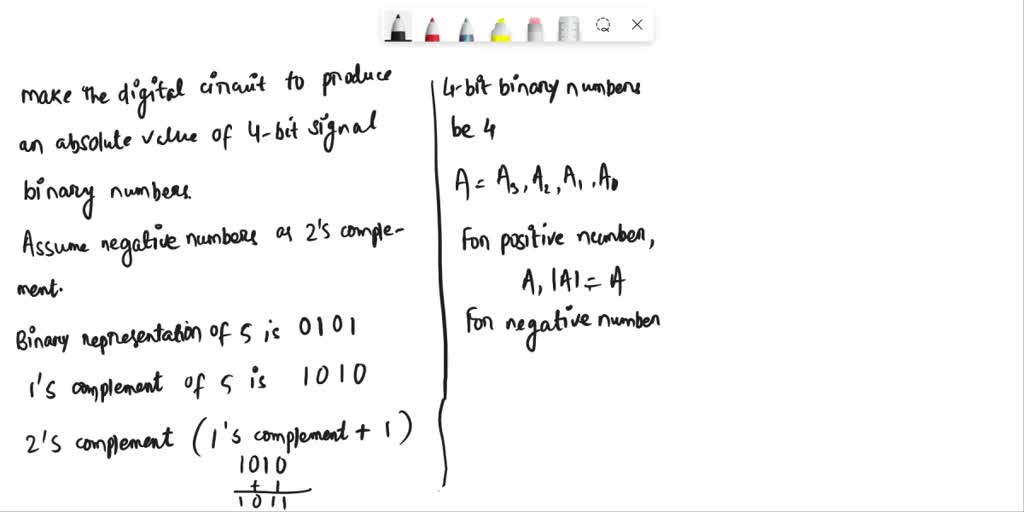 make the digital circuit to produce
an absolute value of 4-bit signal
binary numbers.
Assume negative numbers as 2's comple-
ment.
Binary representation of 5 is 0101
1's complement of 5 is 1010
2's complement (1's complement + 1)
1010
+ 1
1011
4-bit binary numbers
be 4
A = A3, A2, A1, A0
For positive number,
A, |A| = A
For negative number